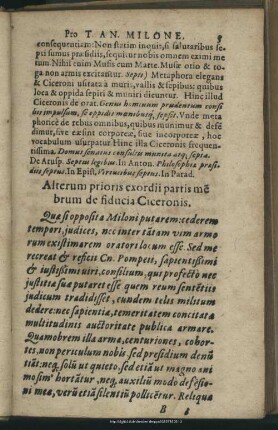 Pro T. AN. MILONE. 5
consequentiam: Non statim inquit, si salutaribus se-
pti sumus præsidiis, sequitur nobis omnem eximi me
tum. Nihil enim Musis cum Marte. Musæ otio & to-
ga non armis excitantur. Septi) Metaphora elegans
& Ciceroni usitata à muris, vallis & sepibus: quibus
loca & oppida sepiri & muniri dicuntur. Hinc illud
Ciceronis de orat.
phoricè de rebus omnibus, quibus munimur & defē
dimur, sive eæ sint corporeæ, sive incorporeæ, hoc
vocabulum usurpatur Hinc illa Ciceronis frequen-
tissima. Domus senatus consultis munita atq; septa.
De Arusp. Septus legibus. In Anton. Philosophiæ præsi-
diis septus. In Epist. Virtutibus septus. In Parad.
Alterum prioris exordii partis mē
brum de fiducia Ciceronis.
Quæ si opposita Miloni putarem: cederem
tempori, judices, nec inter tantam vim armo
rum existimarem oratori locum esse. Sed me
recreat & reficit Cn. Pompeii, sapientissimi
& justissimi viri, consilium, qui profectò nec
justitiæ suæ putaret esse quem reum sententiis
judicum tradidisset, eundem telis militum
dedere: nec sapientiæ, temeritatem concitatæ
multitudinis auctoritate publica armare.
Quamobrem illa arma, centuriones, cohor-
tes, non periculum nobis sed præsidium denū
tiāt: neq; solū ut quieto, sed etiā ut magno ani
mo sim9 hortātur, neq; auxiliū modò defēsio-
ni meæ, verū etiā silentiū pollicētur. Reliqua
B